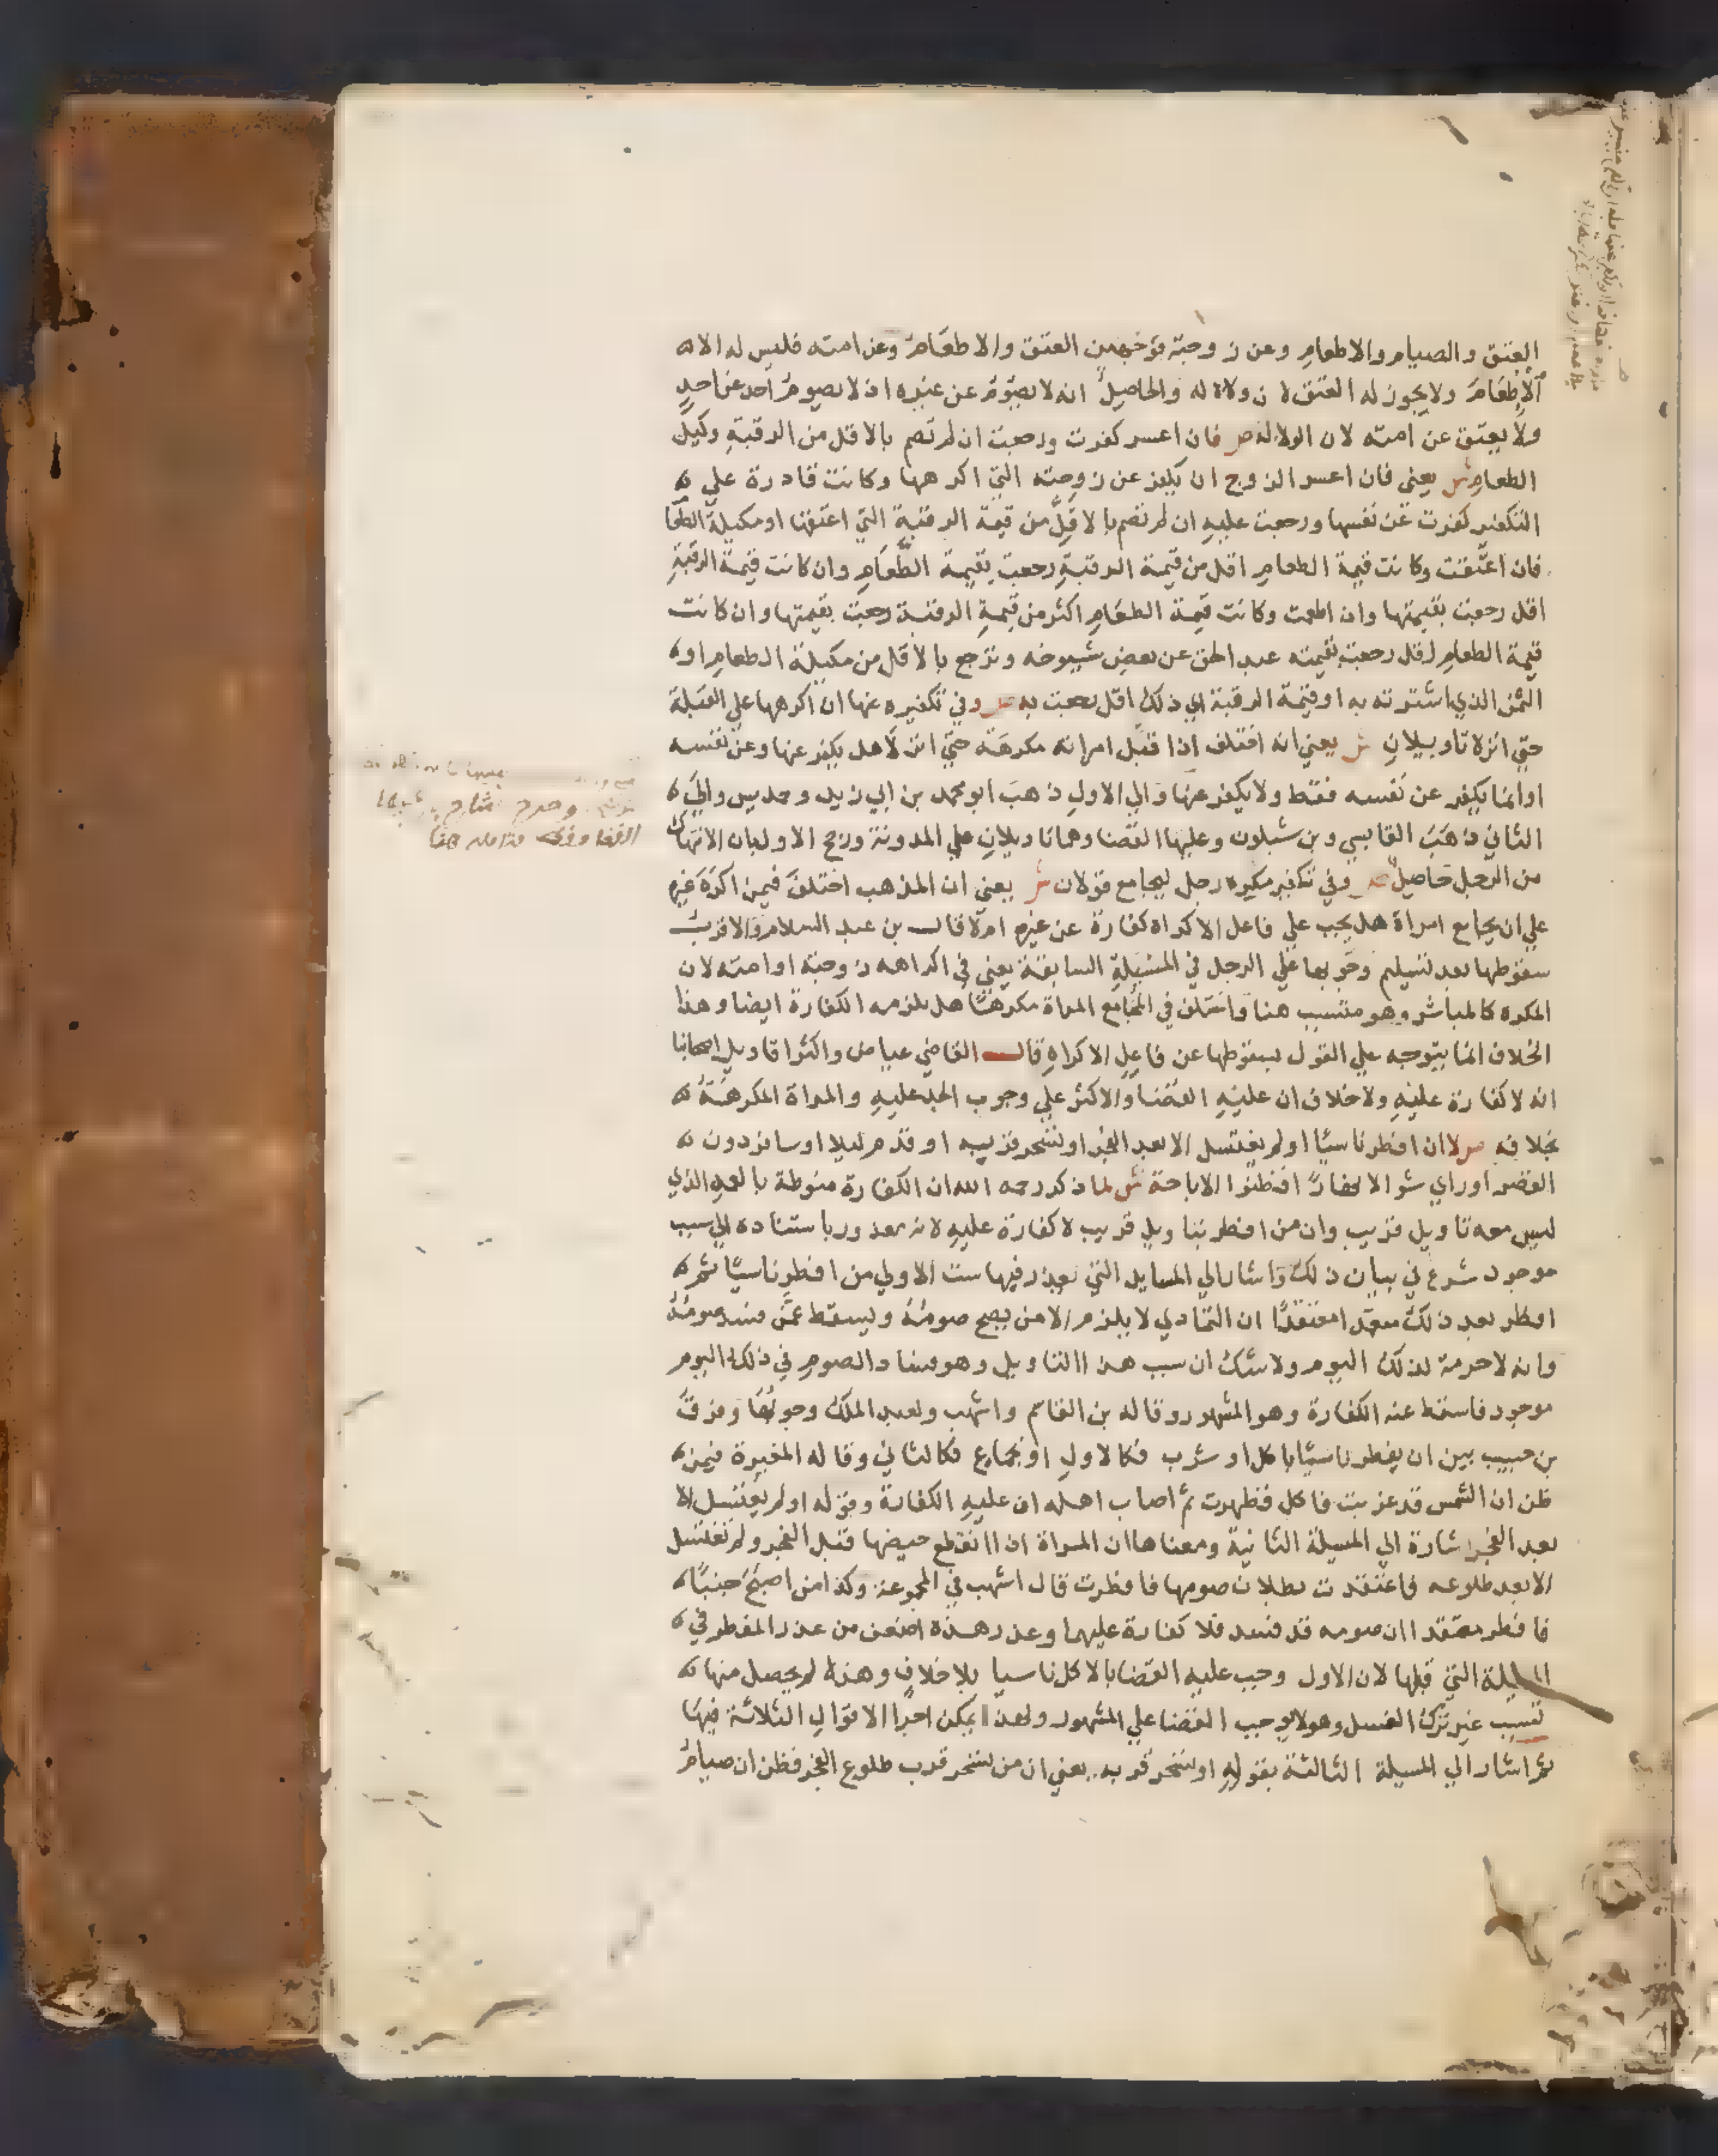 العتق والصيام والاطعام وعن زوجته بوجهين العتق والاطعام وعن امته فليس له الا
الاطعام ولا يجوز له العتق لان ولاة له والحاصل انه لا يصوم عن غيره اذ لا يصوم احد عن احد
ولا يعتق عن امته لان الولا له ص فان اعسر كفرت ورجعت ان لم تصم بالاقل من الرقبة وكيل
الطعام ش يعني فان اعسر الزوج ان يكفر عن زوجته التي اكرهها وكانت قادرة علي
التكفير كفرت عن نفسها ورجعت عليه ان لم تصم بالاقل من قيمة الرقبة التي اعتقتها او مكيلة الطعا
فان اعتقت وكانت قيمة الطعام اقل من قيمة الرقبة رجعت بقيمة الطعام وان كانت قيمة الرقبة
اقل رجعت بقيمتها وان اطعمت وكانت قيمة الطعام اكثر من قيمة الرقبة رجعت بقيمتها وان كانت
قيمة الطعام اقل رجعت بقيمته عبد الحق عن بعض شيوخه وترجع بالاقل من مكيلة الطعام او
الثمن الذي اشترته به او قيمة الرقبة اي ذلك اقل رجعت به ص وفي تكفيره عنها ان اكرهها علي القبلة
حتي انزلا تاويلان ش يعني انه اختلف اذا قبل امراته مكرهة حتي انزلا هل يكفر عنها وعن نفسه
او انما يكفر عن نفسه فقط ولا يكفر عنها والي الاول ذهب ابو محمد بن ابي زيد وحمديس والي
الثاني ذهب القابسي وبن شبلون وعليها القضا وهما تاويلان علي المدونة ورجح الاول بان الانتهاك
من الرجل حاصل ص وفي تكفير مكره رجل ليجامع قولان ش يعني ان المذهب اختلف فيمن اكره غيره
علي ان يجامع امراة هل يجب علي فاعل الاكراه كفارة عن غيره ام لا قال بن عبد السلام والاقرب
سقوطها بعد تسليم وجوبها علي الرجل في المسيلة السابقة يعني في اكراهه زوجته او امته لان
المكره كالمباشر وهو متسبب هنا واختلف في المجامع المراة مكرها هل يلزمه الكفارة ايضا وهذا
الخلاف انما يتوجه علي القول بسقوطها عن فاعل الاكراه قال القاضي عياض واكثر اقاويل اصحابنا
انه لا كفارة عليه ولا خلاف ان عليه القضا والاكثر علي وجوب الحد عليه والمراة المكرهة
بخلافه ص لا ان افطر ناسيا او لم يغتسل الا بعد الفجر او تسحر قربه او قدم ليلا او سافر دون
القصر او راي شوالا نهارا فظنوا الاباحة ش لما ذكر رحمه الله ان الكفارة منوطة بالعمد الذي
ليس معه تاويل قريب وان من افطر بتاويل قريب لا كفارة عليه لانه معذور باستناده الي سبب
موجود شرع في بيان ذلك واشار الي المسايل التي يعذر فيها ست الاولي من افطر ناسيا ثم
افطر بعد ذلك متعمدا معتقدا ان التمادي لا يلزم الا من يصح صومه ويسقط عمن فسد صومه
وانه لا حرمة لذلك اليوم ولا شك ان سبب هذا التاويل وهو فساد الصوم في ذلك اليوم
موجود فاسقط عنه الكفارة وهو المشهور وقاله بن القاسم واشهب ولعبد الملك وجوبها وفرق
بن حبيب بين ان يفطر ناسيا باكل او شرب فكالاول او بجماع فكالثاني وقاله المغيرة فيمن
ظن ان الشمس قد غربت فاكل فظهرت ثم اصاب اهله ان عليه الكفارة وقوله او لم يغتسل الا
بعد الفجر اشارة الي المسيلة الثانية ومعناها ان المراة اذا انقطع حيضها قبل الفجر ولم تغتسل
الا بعد طلوعه فاعتقدت بطلان صومها فافطرت قال اشهب في المجموعة وكذا من اصبح جنبا
فافطر معتقدا ان صومه قد فسد فلا كفارة عليهما وعذر هذه اضعف من عذر المفطر في
المسيلة التي قبلها لان الاول وجب عليه القضا بالاكل ناسيا بلا خلاف وهذه لم يحصل منها
تسبب غير ترك الغسل وهو لا يوجب القضا علي المشهور ولهذا يمكن اجرا الاقوال الثلاثة فيها
ثم اشار الي المسيلة الثالثة بقوله او تسحر قربه يعني ان من تسحر قرب طلوع الفجر فظن ان صيام
وصرح شارح